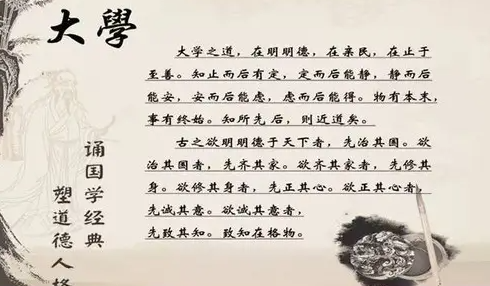 大學
大学之道，在明明德，在亲民，在止于
至善。知止而后有定，定而后能静，静而后
能安，安而后能虑，虑而后能得。物有本末，
事有终始。知所先后，则近道矣。
古之欲明明德于天下者，先治其国。欲
治其国者，先齐其家。欲齐其家者，先修其
身。欲修其身者，先正其心。欲正其心者，
先诚其意。欲诚其意者，
先致其知。致知在格物。
诵国学经典
塑道德人格